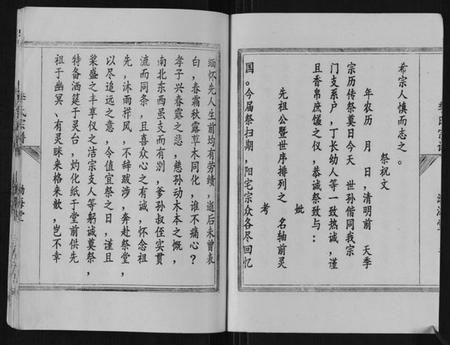 希宗人慎而志之。
祭祝文
年农历 月 日，清明前 天季
宗历传祭莫日今天 世孙偕同我宗
门支系户，丁长幼人等一致热诚，谨
且香帛庶馐之仪，恭诚祭致与：
先祖公暨世序排列之 名轴前灵
考
妣
国。今届祭扫期，阳宅宗众各尽回忆
缅怀先人生前均有劳绩，逝后未曾表
白，春霜秋露草木同化，谁不痛心？
孝子兴春露之悲，慈孙动木本之慨，
南北东西虽支而有别，爹孙叔侄实贯
流而同条，且喜众心之有诚，怀念祖
先，沐雨栉风，不辞跋涉，奔赴祭堂，
以尽追远之意，今值宜祭之日，谨且
粢盛之丰享仪之洁宗支人等躬诚奠祭，
特备酒筵于灵台，灼化纸于堂前供先
祖于幽冥、有灵昧来格来歆，岂不幸